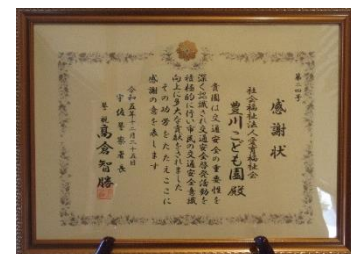 第二四号
感謝状
社会福祉法人宝育福祉会
豊川こども園殿
貴園は交通安全の重要性を
深く認識され交通安全啓発活動を
積極的に行い市民の交通安全意識
向上に多大な貢献をされました
その功労をたたえここに
感謝の意を表します
令和五年十二月二十五日
宇佐警察署長
警視 髙倉智勝